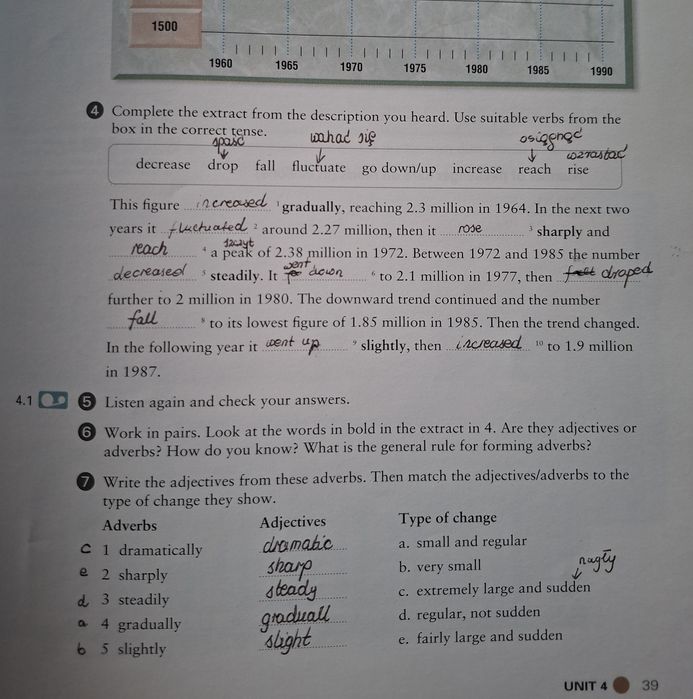 1500
1960 1965 1970 1975 1980 1985 1990
4 Complete the extract from the description you heard. Use suitable verbs from the
box in the correct tense.
spaść wahać się osiągnąć wzrastać
decrease drop fall fluctuate go down/up increase reach rise
This figure increased 1 gradually, reaching 2.3 million in 1964. In the next two
years it fluctuated 2 around 2.27 million, then it rose 3 sharply and
szczyt
reach 4 a peak of 2.38 million in 1972. Between 1972 and 1985 the number
decreased 5 steadily. It went down 6 to 2.1 million in 1977, then draped
further to 2 million in 1980. The downward trend continued and the number
fall 8 to its lowest figure of 1.85 million in 1985. Then the trend changed.
In the following year it went up 9 slightly, then increased 10 to 1.9 million
in 1987.
4.1 5 Listen again and check your answers.
6 Work in pairs. Look at the words in bold in the extract in 4. Are they adjectives or
adverbs? How do you know? What is the general rule for forming adverbs?
7 Write the adjectives from these adverbs. Then match the adjectives/adverbs to the
type of change they show.
Adverbs Adjectives Type of change
c 1 dramatically dramatic a. small and regular
e 2 sharply sharp b. very small nagły
d 3 steadily steady c. extremely large and sudden
a 4 gradually graduall d. regular, not sudden
b 5 slightly slight e. fairly large and sudden
UNIT 4 39